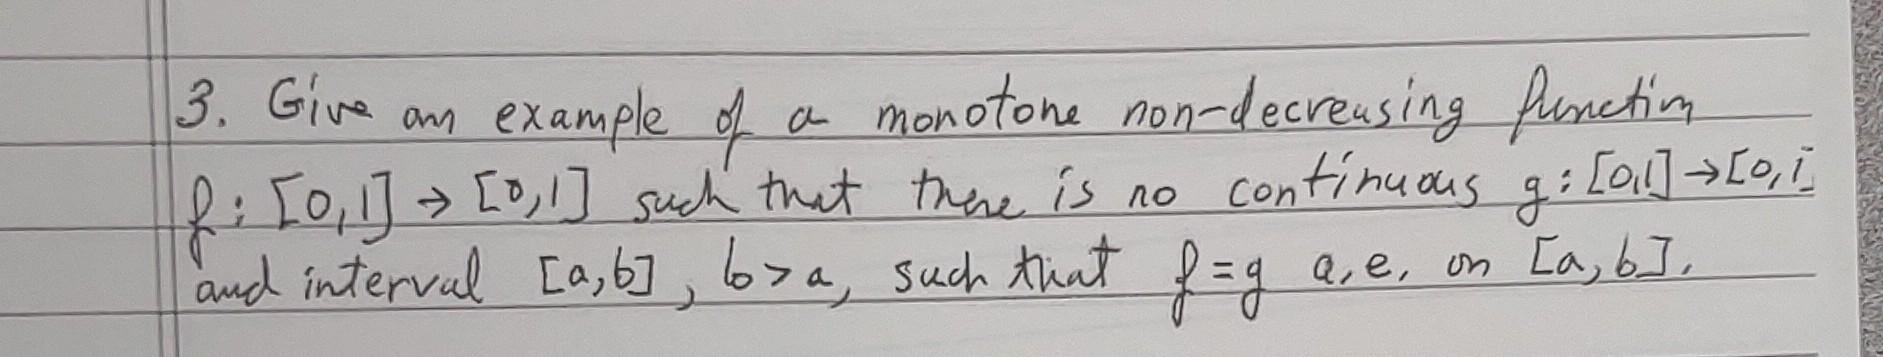 3. Give an example of a monotone non-decreasing function
f : [0,1] → [0,1] such that there is no continuous g : [0,1] → [0,1
and interval [a,b], b > a, such that f = g a.e. on [a,b].